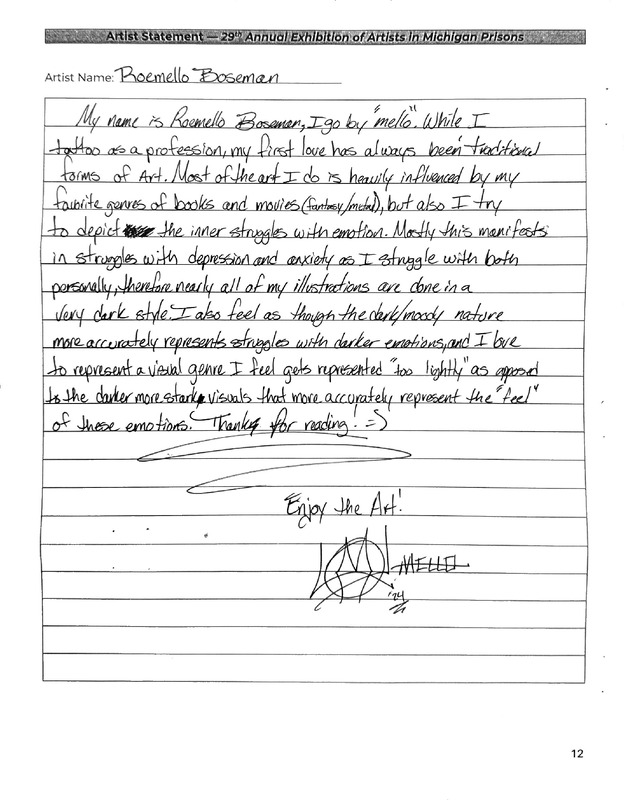 Artist Statement — 29th Annual Exhibition of Artists in Michigan Prisons
Artist Name: Roemello Boseman
My name is Roemello Boseman, I go by "mello". While I
tattoo as a profession, my first love has always been traditional
forms of Art. Most of the art I do is heavily influenced by my
favorite genres of books and movies (fantasy/metal), but also I try
to depict the inner struggles with emotion. Mostly this manifests
in struggles with depression and anxiety as I struggle with both
personally, therefore nearly all of my illustrations are done in a
very dark style. I also feel as though the dark/moody nature
more accurately represents struggles with darker emotions, and I love
to represent a visual genre I feel gets represented "too lightly" as opposed
to the darker more stark visuals that more accurately represent the "feel"
of these emotions. Thanks for reading! =)
Enjoy the Art!
MELLO
'24
12